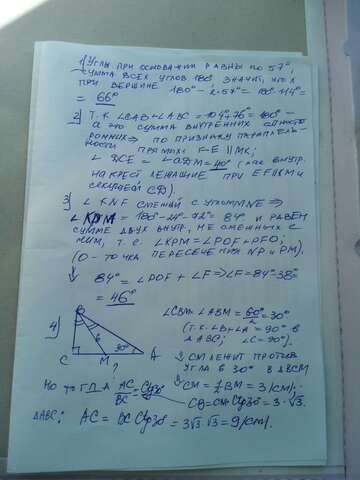 1) Углы при основании равны по 57°,
сумма всех углов 180° значит, угол
при вершине 180° - 2·57° = 180°-114° =
= 66°
2) Т.к. ∠CAB+∠ABC = 104°+76° = 180° -
а это сумма внутренних одност
ронних ⇒ по признаку параллель-
ности прямых FE ∥ MK;
∠DCE = ∠ODM = 40° (как внутр.
накрест лежащие при EF∥KM и
секущей CD).
3) ∠KNF смежный с углом
∠KPM = 180° = 84° и равен
сумме двух внутр., не смежных с
ним, т.е. ∠KPM = ∠POF+∠PFO;
(O - точка пересечения NP и FM).
84° = ∠POF + ∠F ⇒ ∠F = 84°-38°
= 46°
4) B
6
30°
C M A
?
∠CBM = ∠ABM = 60°/2 = 30°
(т.к. ∠B+∠A = 90° в
△ABC; ∠C = 90°).
CM лежит против
угла в 30° в △BCM
CM = 1/2 BM = 3 (см);
= 3·√3.
Но тогда: AC/BC = Ctg30°
△ABC: AC = BC Ctg30° = 3√3·√3 = 9 (см).